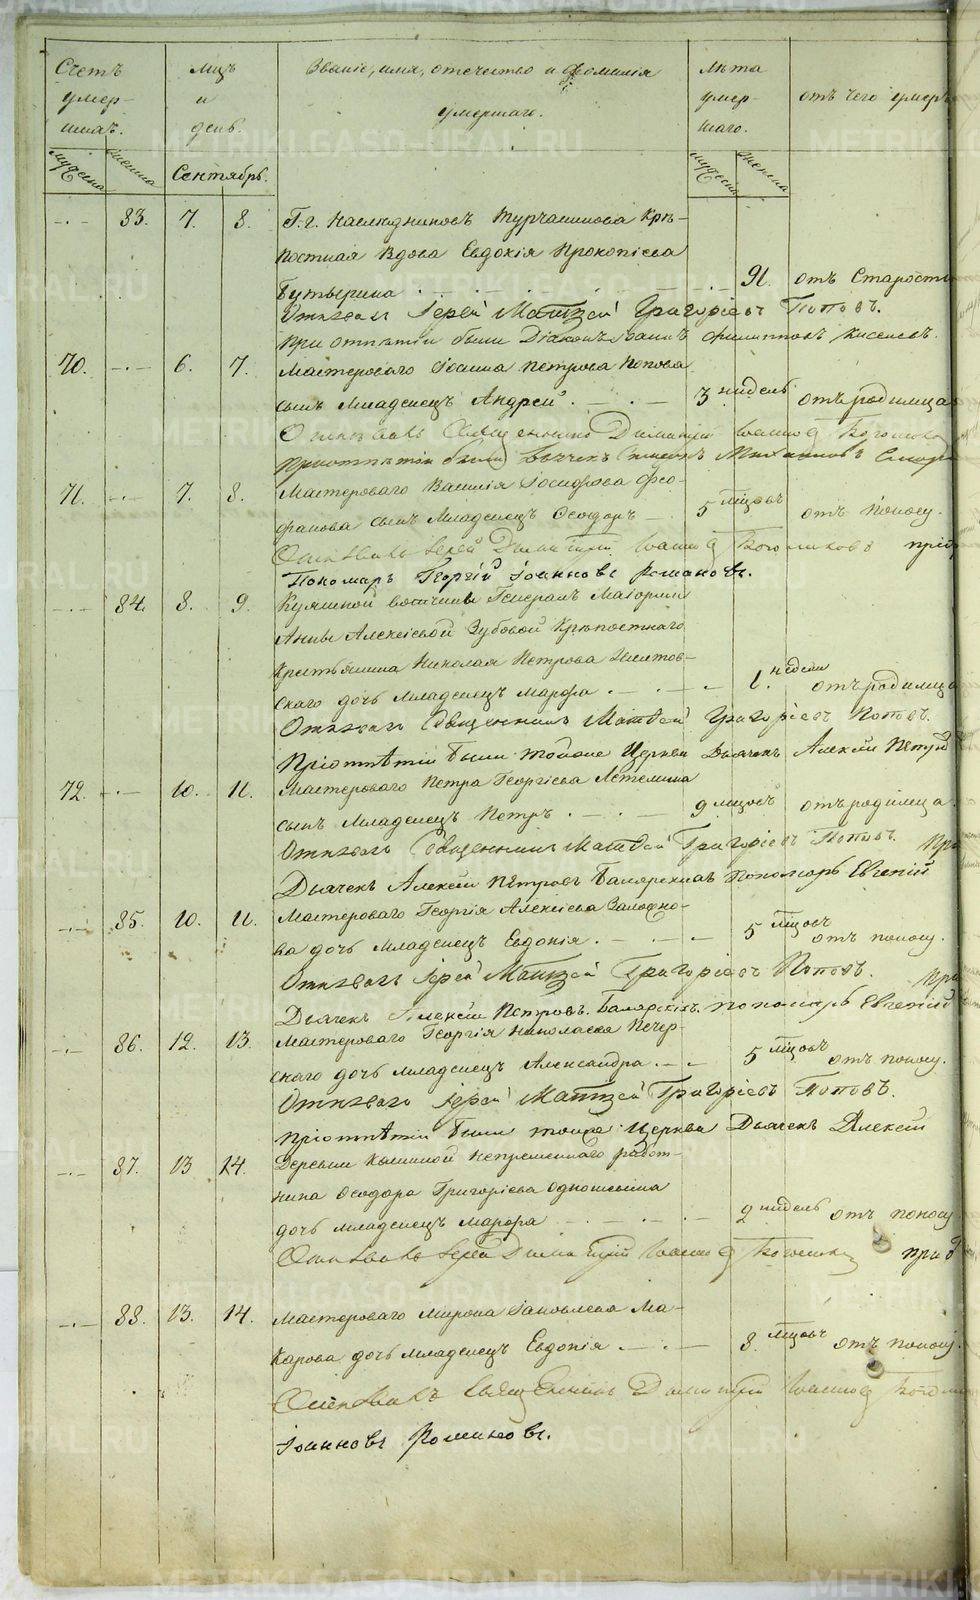 Счетъ умер-шихъ.
Мц҃ъ и день.
Званіе, имя, отечество и фамилія умершаго.
Лѣта умер-шаго.
отъ чего умеръ
мужеска женска
Сентябрь.
мужеска женска
-"- 83. 7. 8. Г. г. наслѣдниковъ Турчанинова Крѣ-
постная Вдова Евдокія Прокопіева
Бутырина 91. отъ Старости
Отпѣвалъ Іерей Матѳей Григоріевъ Поповъ.
при отпѣтіи были Діаконъ Іоаннъ Филипповъ Киселевъ.
70. -"- 6. 7. Мастероваго Іоанна Петрова Попова
сынъ Младенецъ Андрей 3 нидель отъ родимца
Отпѣвалъ Священникъ Димитрій Іоанновъ
при отпѣтіи были Дьячекъ Михаиловъ
71. -"- 7. 8. Мастероваго Василія Іосифова Фео-
фанова сынъ Младенецъ Ѳеодоръ 5 мѣцовъ отъ поносу.
Отпѣвалъ Іерей Димитрій Іоанновъ
Пономарь Георгій Іоанновъ Романовъ.
-"- 84. 8. 9. Куяшской вотчины Генералъ Маіорши
Анны Алексіевой Зубовой Крѣпостнаго
Крестьянина Николая Петрова
скаго дочь младенецъ Марѳа 1. недели отъ родимца
Отпѣвалъ Священникъ Матѳей Григоріевъ Поповъ.
При отпѣтіи были тойже Церкви Дьячекъ Алексѣй Петровъ
72. -"- 10. 11. Мастероваго Петра Георгіева Летемина
сынъ Младенецъ Петръ 9 мѣцовъ отъ родимца.
Отпѣвалъ Священникъ Матѳей Григоріевъ Поповъ. При
Дьячекъ Алексѣй Петровъ Баляркинъ Пономарь Евгеній
-"- 85. 10. 11. Мастероваго Георгія Алексіева
ва дочь Младенецъ Евдокія 5 мѣцовъ отъ поносу.
Отпѣвалъ Іерей Матѳей Григоріевъ Поповъ. При
Дьячекъ Алексѣй Петровъ пономарь Евгеній
-"- 86. 12. 13. Мастероваго Георгія Николаева Печер-
скаго дочь младенецъ Александра 5 мѣцовъ отъ поносу.
Отпѣвалъ Іерей Матѳей Григоріевъ Поповъ.
При отпѣтіи были тойже Церкви Дьячекъ Алексѣй
-"- 87. 13 14. Деревни Косминой непремѣннаго работ-
ника Ѳеодора Григоріева Одношевина
дочь младенецъ Марѳа 2 нидель отъ поносу
Отпѣвалъ Іерей Димитрій Іоанновъ при
-"- 88. 13. 14. Мастероваго Мирона Іаковлева Ма-
карова дочь младенецъ Евдокія 8. мѣцовъ отъ поносу.
Отпѣвалъ Священникъ Димитрій Іоанновъ
Іоанновъ Романовъ.
METRIKI.GASO-URAL.RU